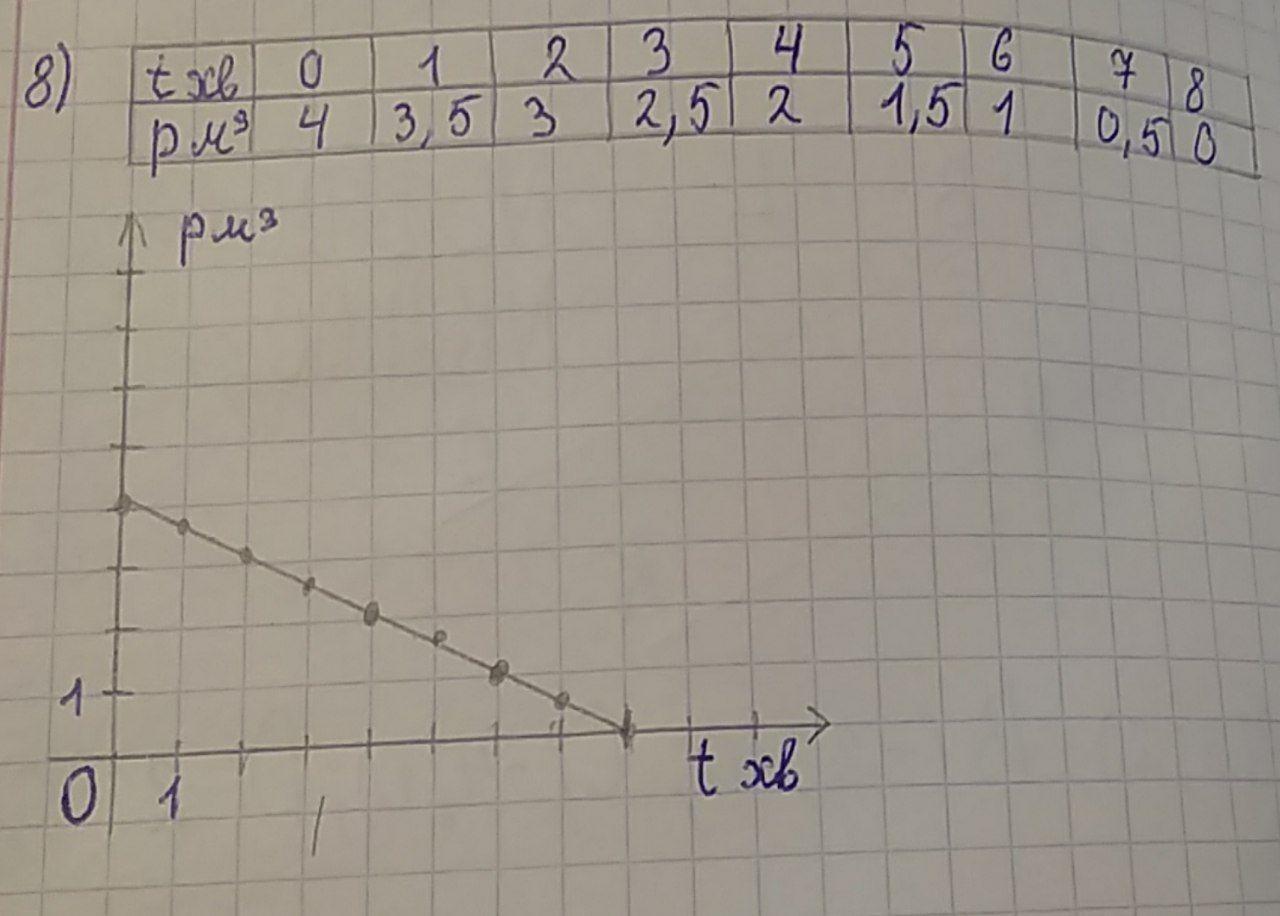 8) t хв 0 1 2 3 4 5 6 7 8
р м³ 4 3,5 3 2,5 2 1,5 1 0,5 0
р м³
1
0 1 t хв